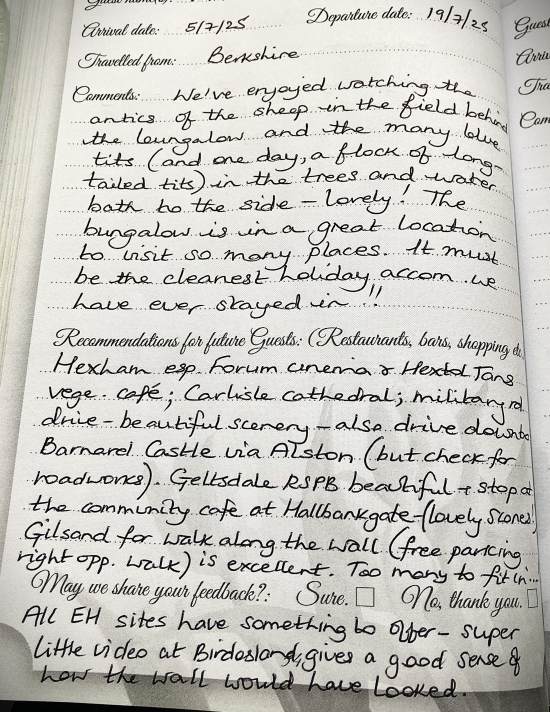 Arrival date: 5/7/25 Departure date: 19/7/25
Travelled from: Berkshire
Comments: We've enjoyed watching the
antics of the sheep in the field behind
the bungalow and the many blue
tits (and one day, a flock of long-
tailed tits) in the trees and water
bath to the side – lovely! The
bungalow is in a great location
to visit so many places. It must
be the cleanest holiday accom. we
have ever stayed in!!
Recommendations for future Guests: (Restaurants, bars, shopping etc
Hexham esp. Forum cinema & Tans
vege. café; Carlisle cathedral; military rd
drive – beautiful scenery – also drive down to
Barnard Castle via Alston (but check for
roadworks). Geltsdale RSPB beautiful + stop at
the community cafe at Hallbankgate – (lovely scones!)
Gilsland for walk along the wall (free parking
right opp. walk) is excellent. Too many to fit in...
May we share your feedback?: Sure. No, thank you.
All EH sites have something to offer – super
little video at Birdoslond, gives a good sense of
how the wall would have looked.
Guest
Arriv
Tra
Com